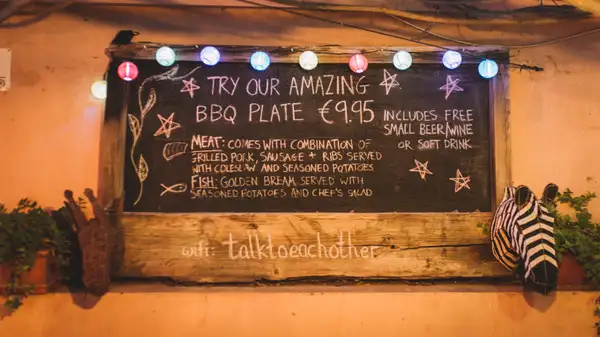 TRY OUR AMAZING
BBQ PLATE €9.95
INCLUDES FREE
SMALL BEER/WINE
OR SOFT DRINK
MEAT: COMES WITH COMBINATION OF
GRILLED PORK, SAUSAGE + RIBS SERVED
WITH COLESLAW AND SEASONED POTATOES
FISH: GOLDEN BREAM SERVED WITH
SEASONED POTATOES AND CHEF'S SALAD
wifi: talktoeachother